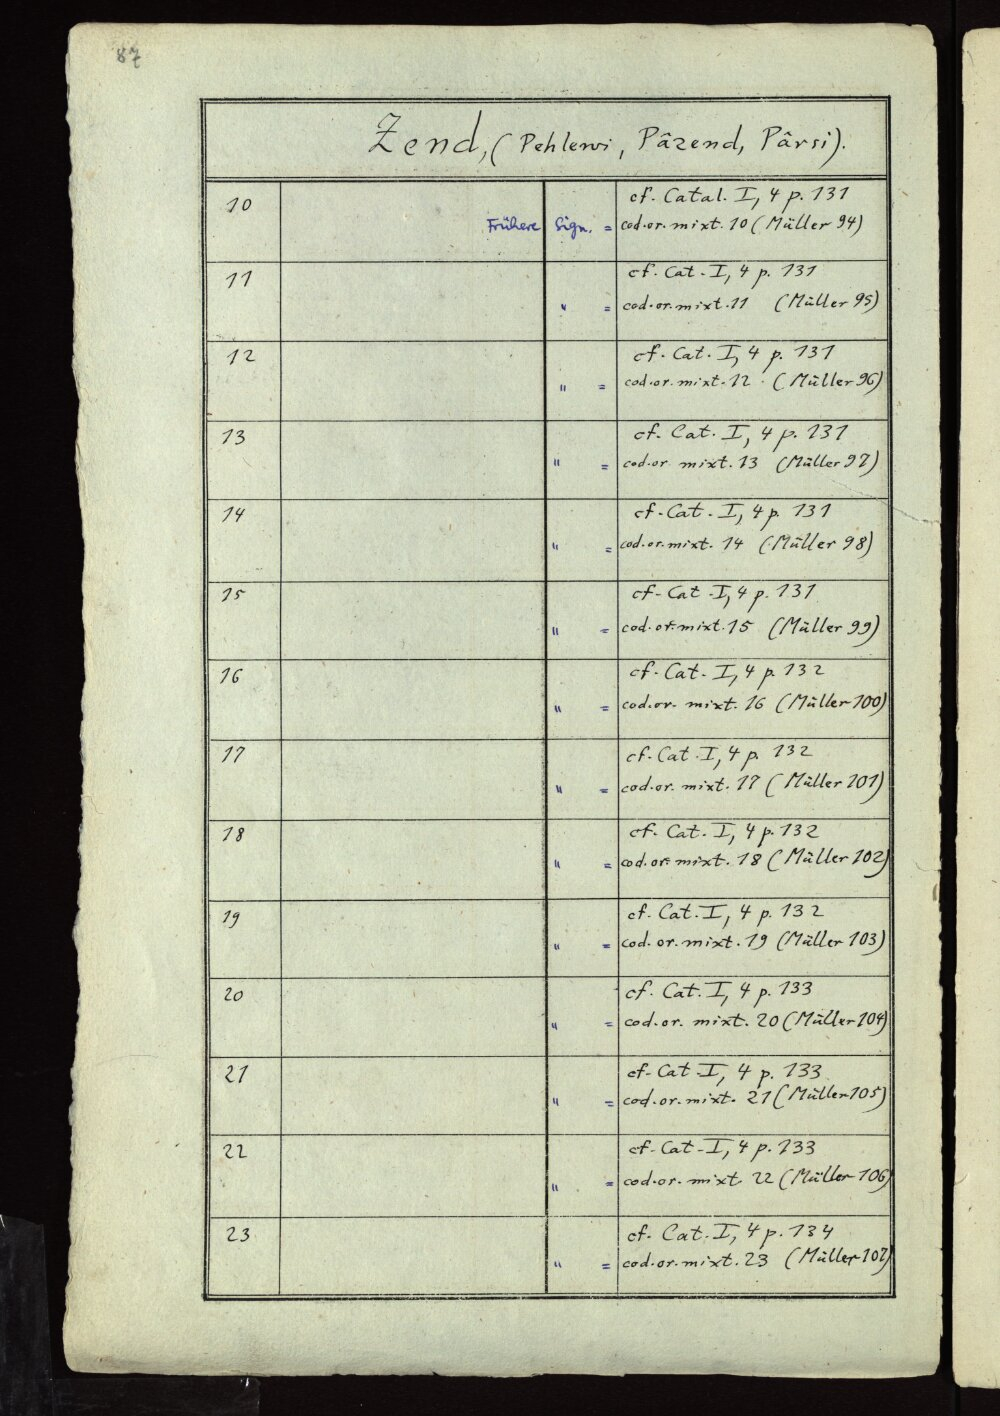 87
Zend, (Pehlewi, Pâzend, Pârsi).
10 cf. Catal. I, 4 p. 131
Frühere Sign. = cod. or. mixt. 10 (Müller 94)
11 cf. Cat. I, 4 p. 131
" = cod. or. mixt. 11 (Müller 95)
12 cf. Cat. I, 4 p. 131
" = cod. or. mixt. 12 (Müller 96)
13 cf. Cat. I, 4 p. 131
" = cod. or mixt. 13 (Müller 97)
14 cf. Cat. I, 4 p. 131
" = cod. or. mixt. 14 (Müller 98)
15 cf. Cat. I, 4 p. 131
" = cod. or. mixt. 15 (Müller 99)
16 cf. Cat. I, 4 p. 132
" = cod. or. mixt. 16 (Müller 100)
17 cf. Cat. I, 4 p. 132
" = cod. or. mixt. 17 (Müller 101)
18 cf. Cat. I, 4 p. 132
" = cod. or. mixt. 18 (Müller 102)
19 cf. Cat. I, 4 p. 132
" = cod. or. mixt. 19 (Müller 103)
20 cf. Cat. I, 4 p. 133
" = cod. or. mixt. 20 (Müller 104)
21 cf. Cat. I, 4 p. 133
" = cod. or. mixt. 21 (Müller 105)
22 cf. Cat. I, 4 p. 133
" = cod. or. mixt. 22 (Müller 106)
23 cf. Cat. I, 4 p. 134
" = cod. or. mixt. 23 (Müller 107)